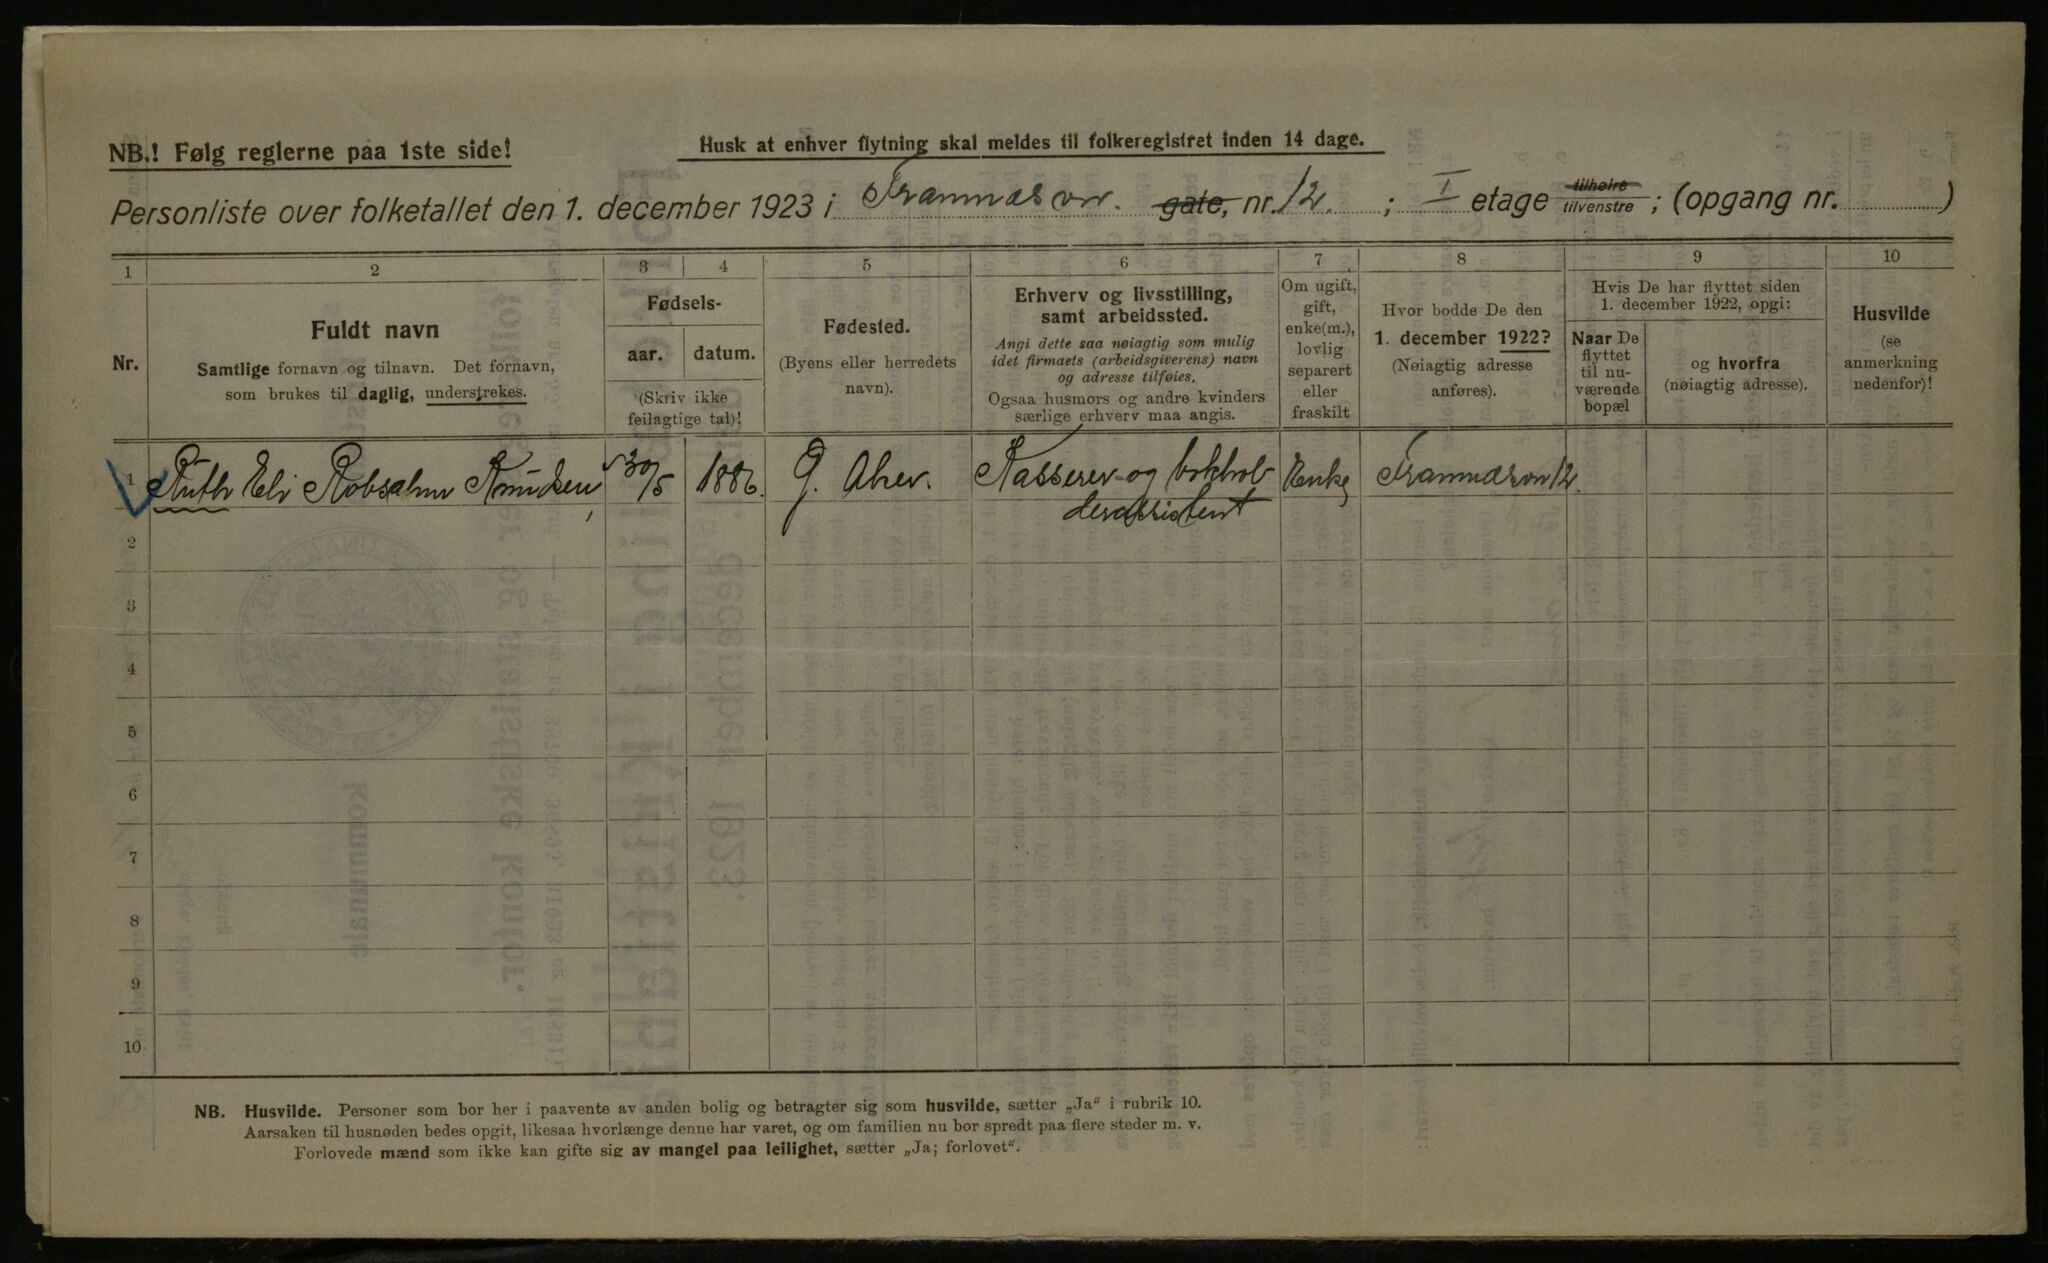 NB.! Følg reglerne paa 1ste side!
Husk at enhver flytning skal meldes til folkeregistret inden 14 dage.
Personliste over folketallet den 1. december 1923 i Framnæsvn. gate, nr. 12. ; I etage tilhøire tilvenstre ; (opgang nr. )
1 2 3 4 5 6 7 8 9 10
Nr.
Fuldt navn
Samtlige fornavn og tilnavn. Det fornavn,
som brukes til daglig, understrekes.
Fødsels-
aar. datum.
(Skriv ikke
feilagtige tal)!
Fødested.
(Byens eller herredets
navn).
Erhverv og livsstilling,
samt arbeidssted.
Angi dette saa nøiagtig som mulig
idet firmaets (arbeidsgiverens) navn
og adresse tilføies.
Ogsaa husmors og andre kvinders
særlige erhverv maa angis.
Om ugift,
gift,
enke(m.),
lovlig
separert
eller
fraskilt
Hvor bodde De den
1. december 1922?
(Nøiagtig adresse
anføres).
Hvis De har flyttet siden
1. december 1922, opgi:
Naar De
flyttet
til nu-
værende
bopæl
og hvorfra
(nøiagtig adresse).
Husvilde
(se
anmerkning
nedenfor)!
1 Ruth Eli Robsahm Knudsen 30/5 1886. Ø. Aker. Kasserer og bokhol- Enke Framnæsvn 12.
derassistent
2
3
4
5
6
7
8
9
10
NB. Husvilde. Personer som bor her i paavente av anden bolig og betragter sig som husvilde, sætter „Ja“ i rubrik 10.
Aarsaken til husnøden bedes opgit, likesaa hvorlænge denne har varet, og om familien nu bor spredt paa flere steder m. v.
Forlovede mænd som ikke kan gifte sig av mangel paa leilighet, sætter „Ja; forlovet“.